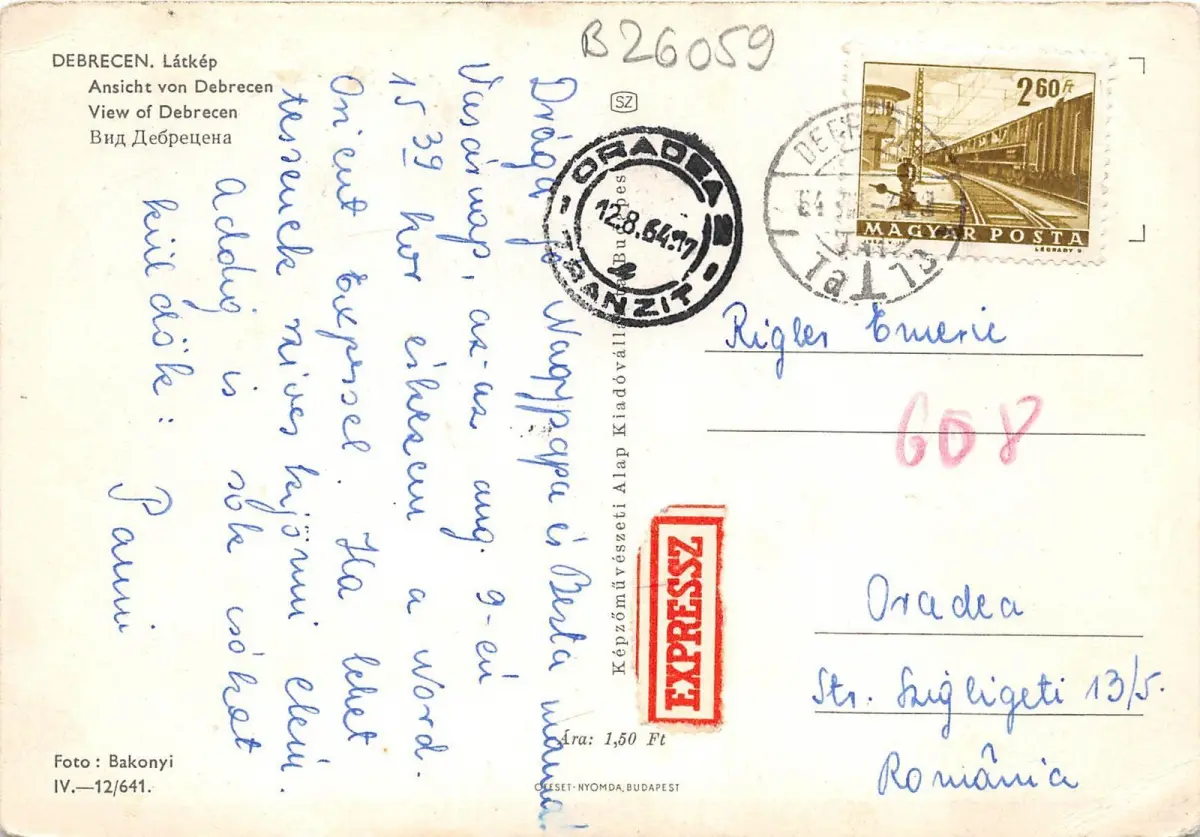 DEBRECEN. Látkép
Ansicht von Debrecen
View of Debrecen
Вид Дебрецена
B26059
SZ
Drága jó Nagypapa és Berta mama!
Vasárnap, az-az aug. 9-én
15 39 kor érkezem a Nord.
Orient Expressel. Ha lehet
tessenek szives kijönni elém.
Addig is sok csókot
küldök:
Panni
ORADEA 2
12.8.64.17
TRANZIT
Képzőművészeti Alap Kiadóvállalata, Budapest
260 Ft
MAGYAR POSTA
LÉGRÁDY S
Rigler Emeric
608
EXPRESSZ
Oradea
Str. Szigligeti 13/5.
Románia
Ára: 1,50 Ft
Foto : Bakonyi
IV.—12/641.
OFSET-NYOMDA, BUDAPEST